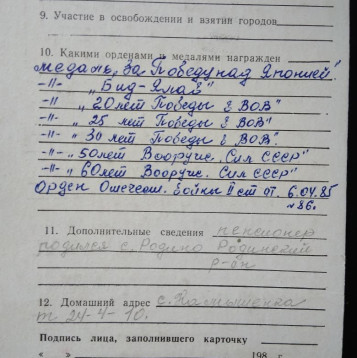 9. Участие в освобождении и взятии городов
10. Какими орденами и медалями награжден
медаль „За Победу над Японией"
-"- „Бид-Ялав"
-"- „20 лет Победы в ВОВ"
-"- „25 лет Победы в ВОВ"
-"- „30 лет Победы в ВОВ"
-"- „50 лет Вооруж. Сил СССР"
-"- „60 лет Вооруж. Сил СССР"
Орден Отечеств. Войны II ст от 6.04.85
№86.
11. Дополнительные сведения пенсионер
родился с. Родино Родинский
р-он
12. Домашний адрес с. Камышенка
т 24-4-10.
Подпись лица, заполнившего карточку
" " 198 г.